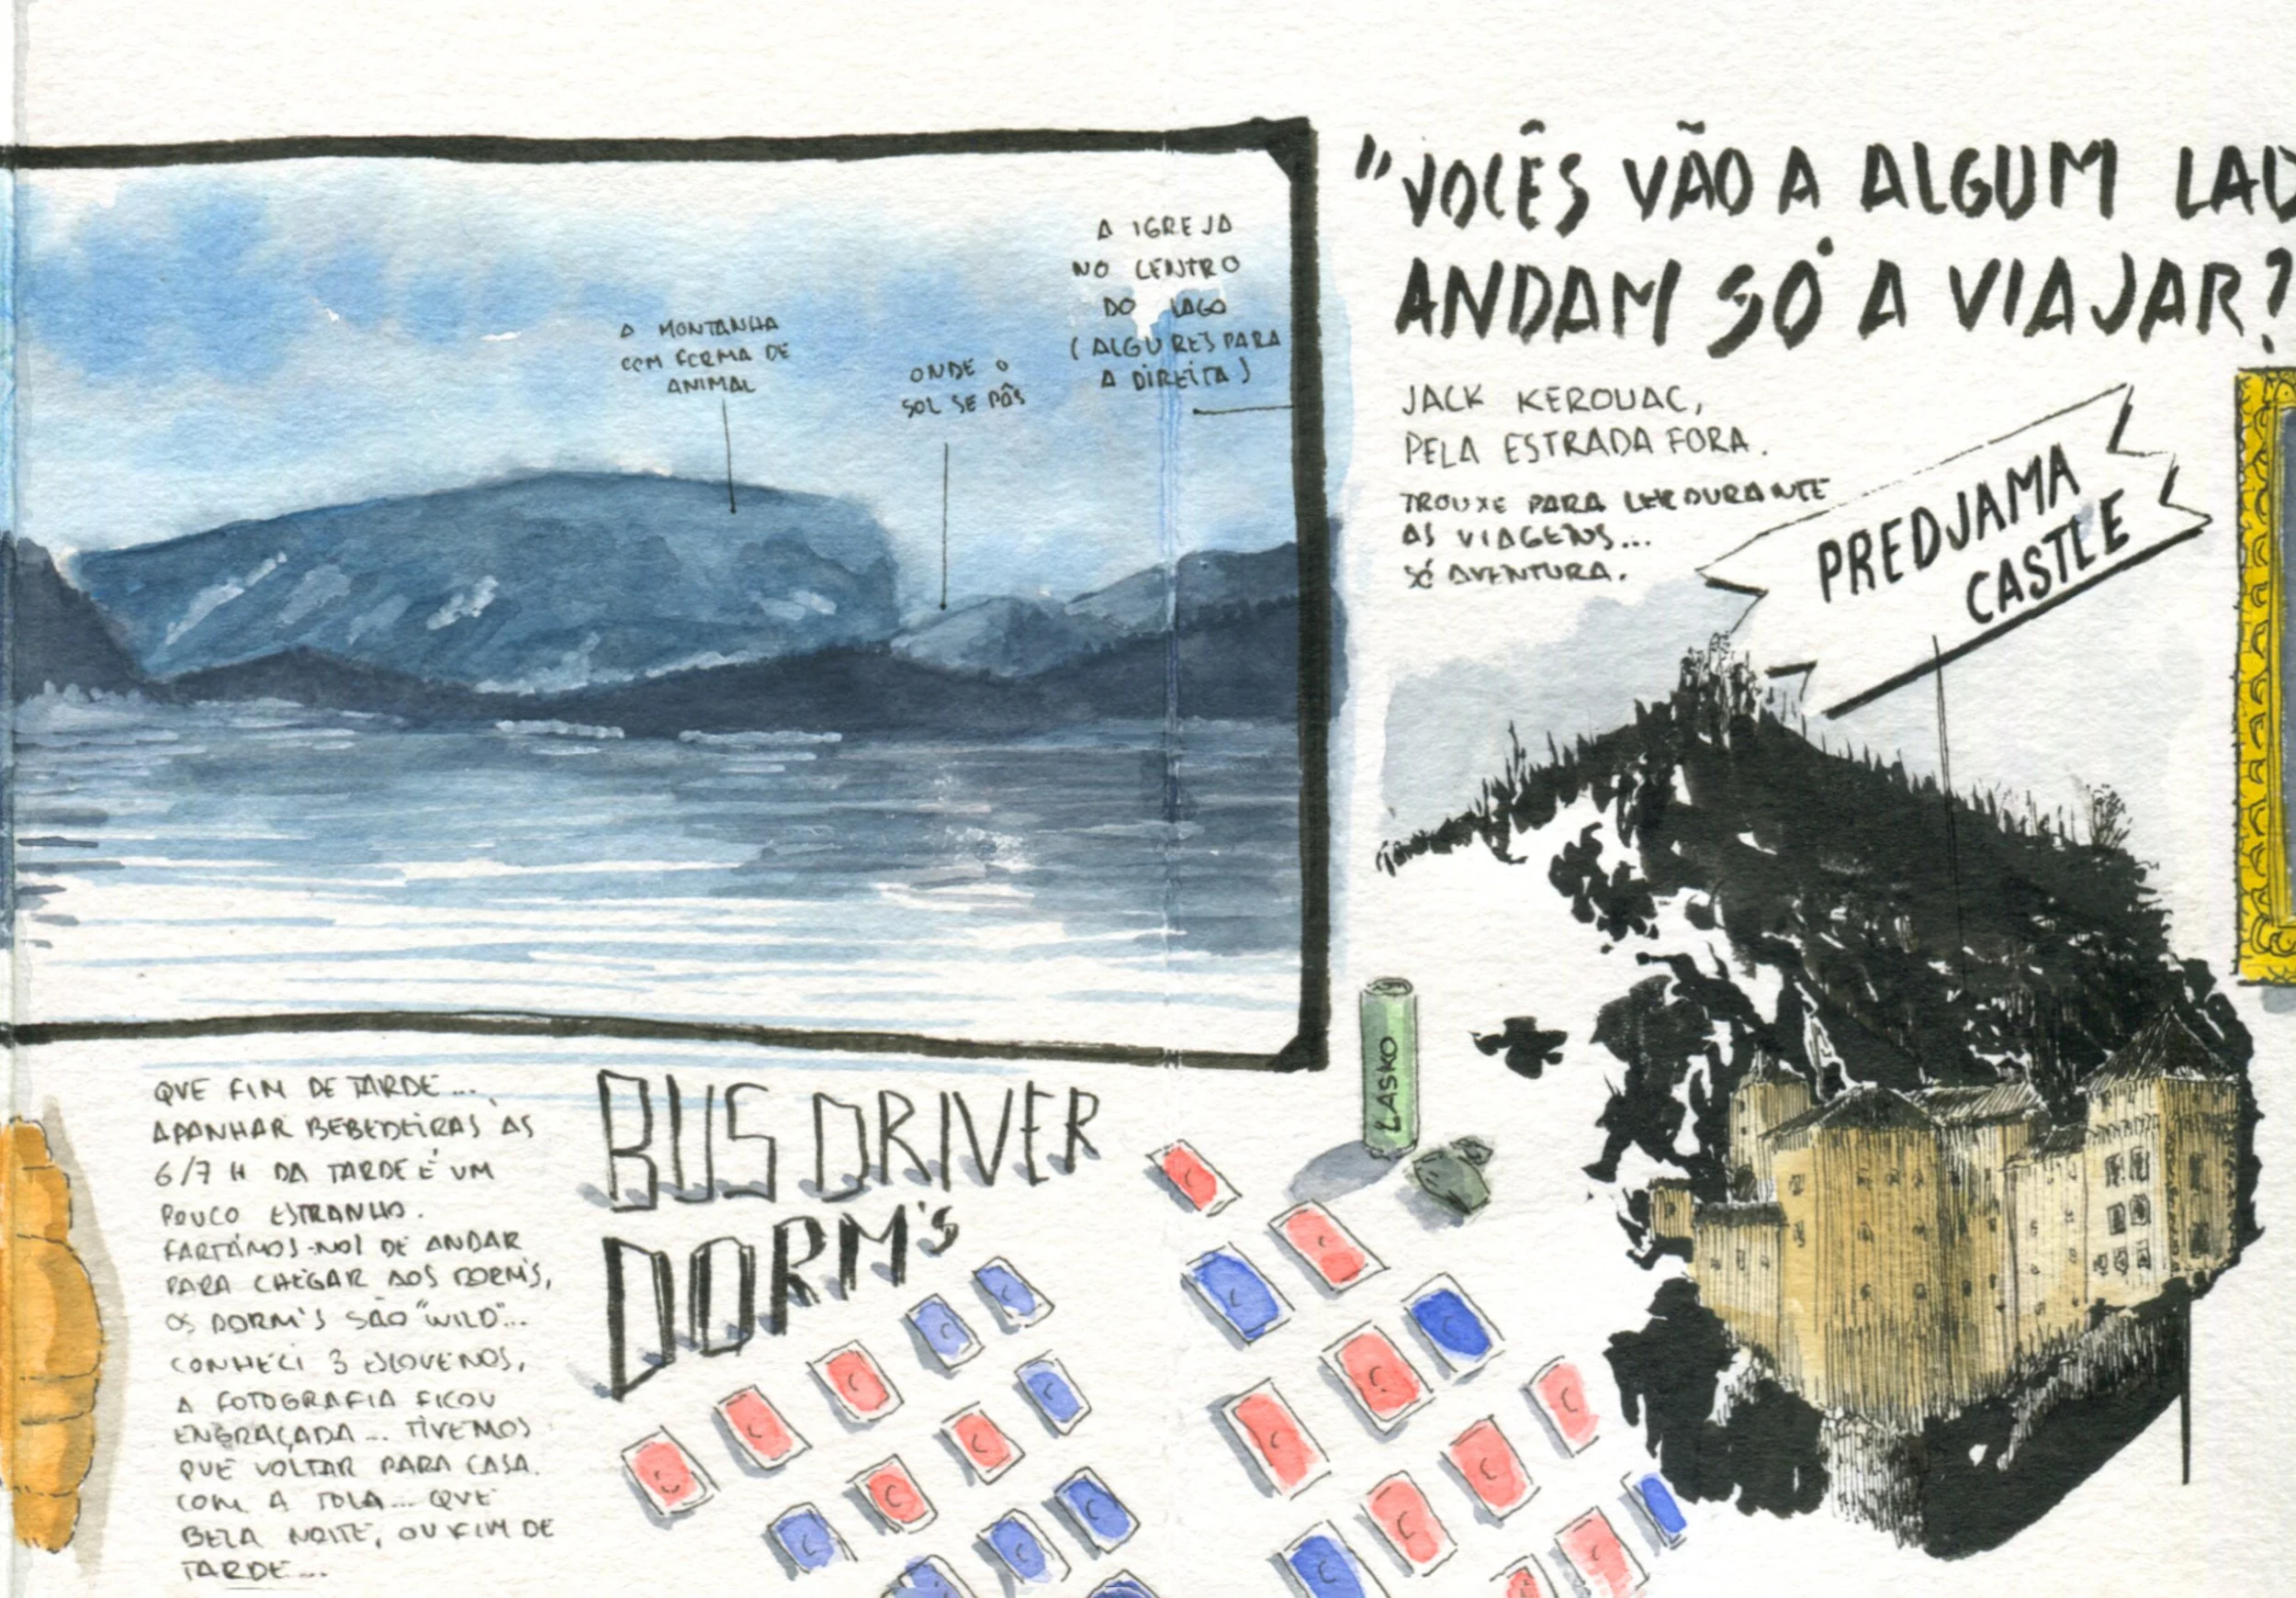 A MONTANHA
COM FORMA DE
ANIMAL
ONDE O
SOL SE PÔS
A IGREJA
NO CENTRO
DO LAGO
(ALGURES PARA
A DIREITA)
"VOCÊS VÃO A ALGUM
ANDAM SÓ A VIAJAR?
JACK KEROUAC,
PELA ESTRADA FORA.
TROUXE PARA LER DURANTE
AS VIAGENS...
SÓ AVENTURA.
PREDJAMA
CASTLE
LASKO
QUE FIM DE TARDE...
APANHAR BEBEDEIRAS ÀS
6/7 H DA TARDE É UM
POUCO ESTRANHO.
FARTÁMOS-NOS DE ANDAR
PARA CHEGAR AOS DORM'S,
OS DORM'S SÃO "WILD"...
CONHECI 3 ESLOVENOS,
A FOTOGRAFIA FICOU
ENGRAÇADA... TIVEMOS
QUE VOLTAR PARA CASA.
COM A TOLA... QUE
BELA NOITE, OU FIM DE
TARDE...
BUS DRIVER
DORM'S